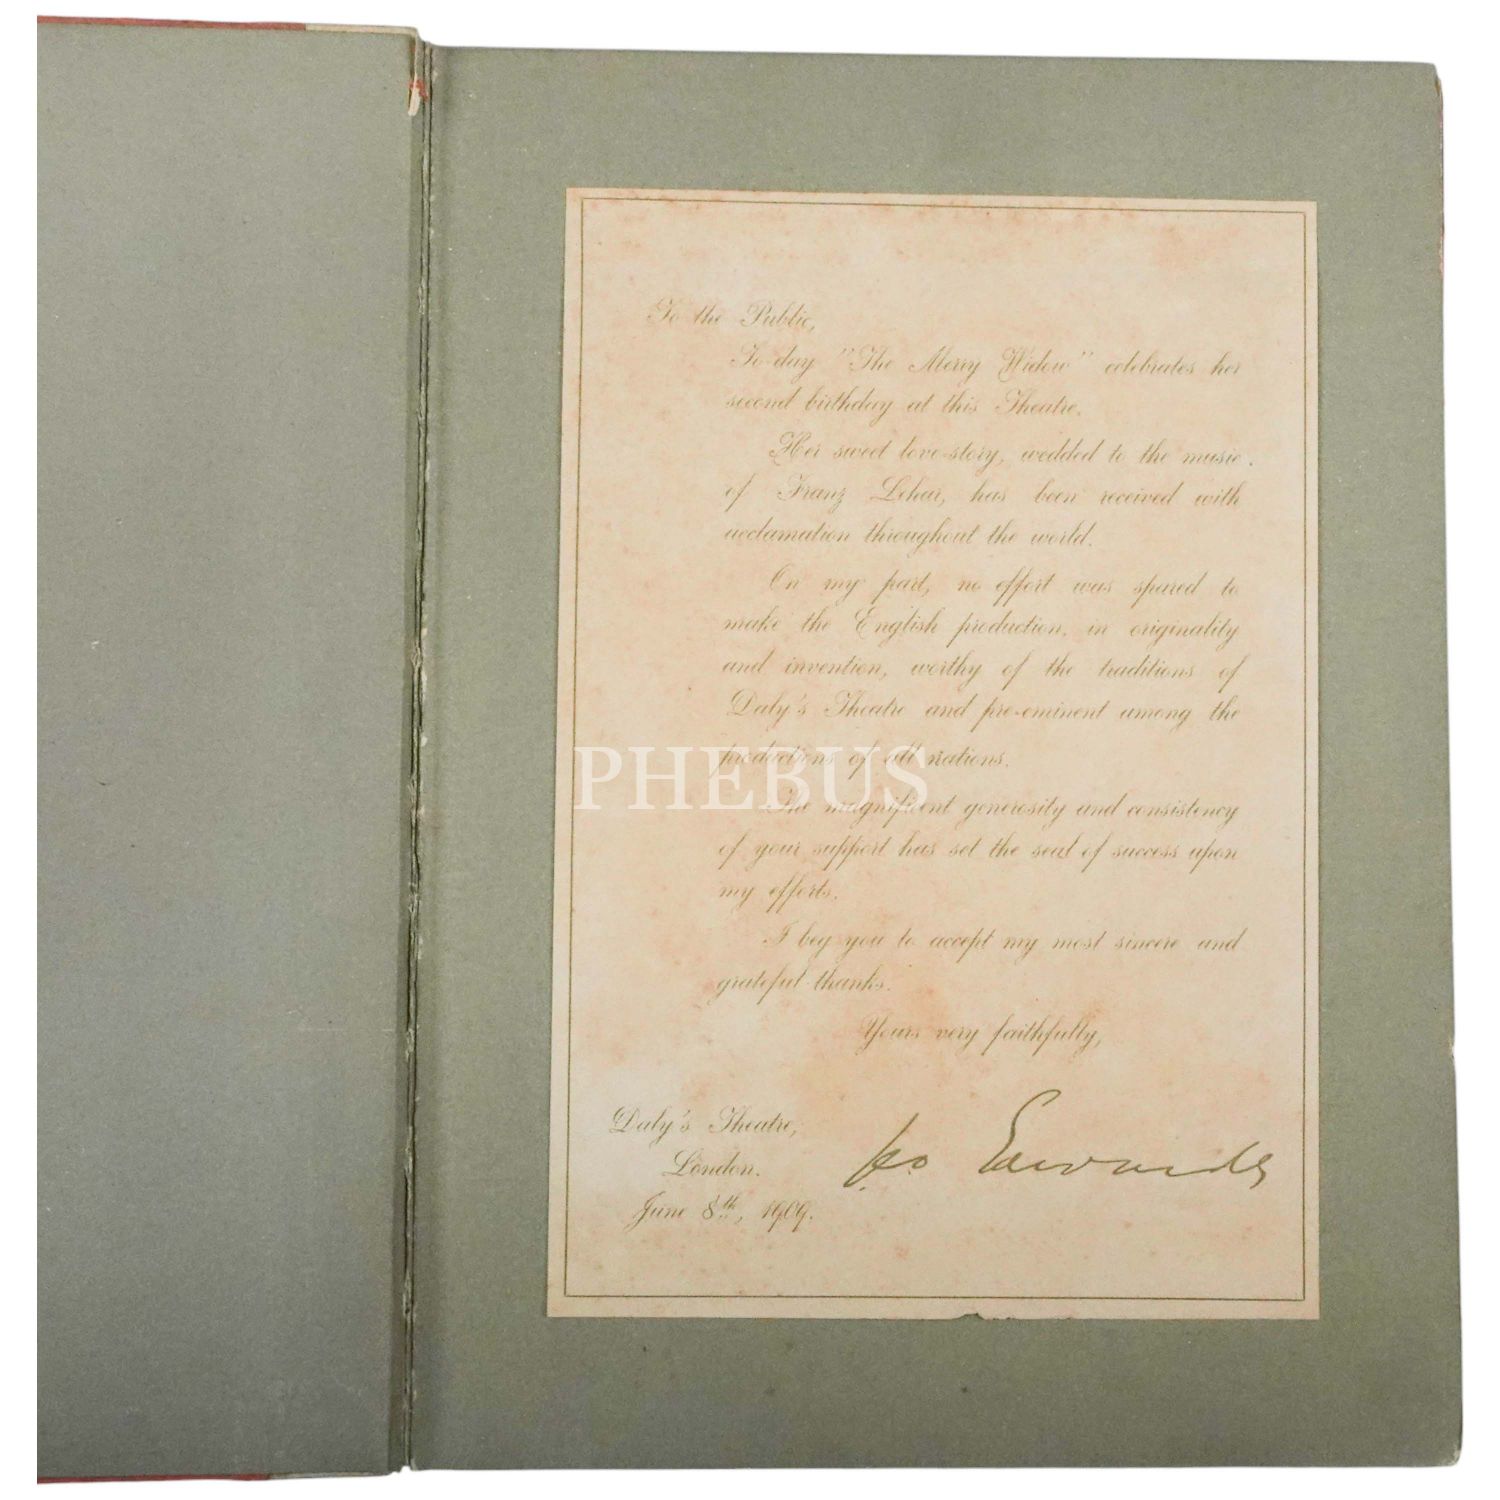 To the Public,
To-day "The Merry Widow" celebrates her
second birthday at this Theatre.
Her sweet love-story, wedded to the music
of Franz Lehar, has been received with
acclamation throughout the world.
On my part, no effort was spared to
make the English production, in originality
and invention, worthy of the traditions of
Daly's Theatre and pre-eminent among the
productions of all nations.
PHEBUS
The magnificent generosity and consistency
of your support has set the seal of success upon
my efforts.
I beg you to accept my most sincere and
grateful thanks.
Yours very faithfully,
Daly's Theatre,
London.
June 8th, 1909.
Geo Edwardes